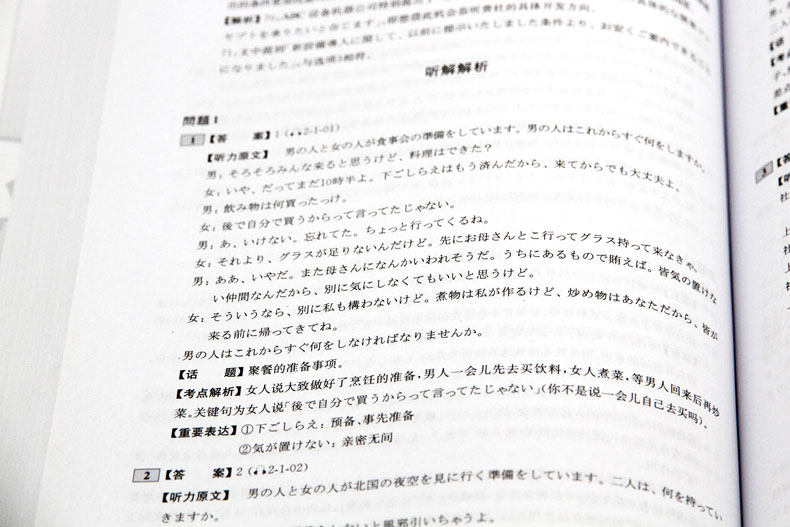 听解解析
問題1
1 【答 案】1 (••2-1-01)
【听力原文】 男の人と女の人が食事会の準備をしています。男の人はこれからすぐ何をしますか。
男：そろそろみんな来ると思うけど、料理はできた？
女：いや、だってまだ10時半よ。下ごしらえはもう済んだから、来てからでも大丈夫よ。
男：飲み物は何買ったっけ。
女：後で自分で買うからって言ってたじゃない。
男：あ、いけない。忘れてた。ちょっと行ってくるね。
女：それより、グラスが足りないんだけど。先にお母さんとこ行ってグラス持って来なきゃ。
男：ああ、いやだ。また母さんになんかいわれそうだ。うちにあるもので賄えば。皆気の置けな
い仲間なんだから、別に気にしなくてもいいと思うけど。
女：そういうなら、別に私も構わないけど。煮物は私が作るけど、炒め物はあなただから、皆が
来る前に帰ってきてね。
男の人はこれからすぐ何をしなければなりませんか。
【话 题】聚餐的准备事项。
【考点解析】女人说大致做好了烹饪的准备，男人一会儿先去买饮料，女人煮菜，等男人回来后再炒
菜。关键句为女人说「後で自分で買うからって言ってたじゃない」(你不是说一会儿自己去买吗)。
【重要表达】①下ごしらえ：预备、事先准备
②気が置けない：亲密无间
2 【答 案】2 (••2-1-02)
【听力原文】 男の人と女の人が北国の夜空を見に行く準備をしています。二人は、何を持ってい
きますか。